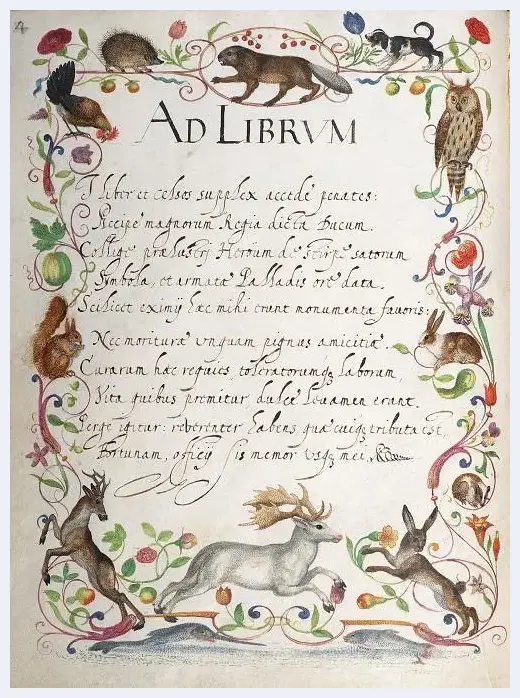 AD LIBRVM
I liber et celsos supplex accede penates:
Accipe magnorum Regia dicta Ducum.
Collige prælustrj Heröum de stirpe satorum
Symbola, et armatæ Palladis ore data.
Scilicet eximij hæc mihi erunt monumenta fauoris:
Nec morituræ vnquam pignus amicitiæ.
Curarum hæc requies, toleratorumq3 laborum,
Vita quibus premitur, dulce leuamen erunt.
Perge igitur: reuerenter habens quæ cuiq3 tributa est,
Fortunam, officij sis memor vsq3 mei.